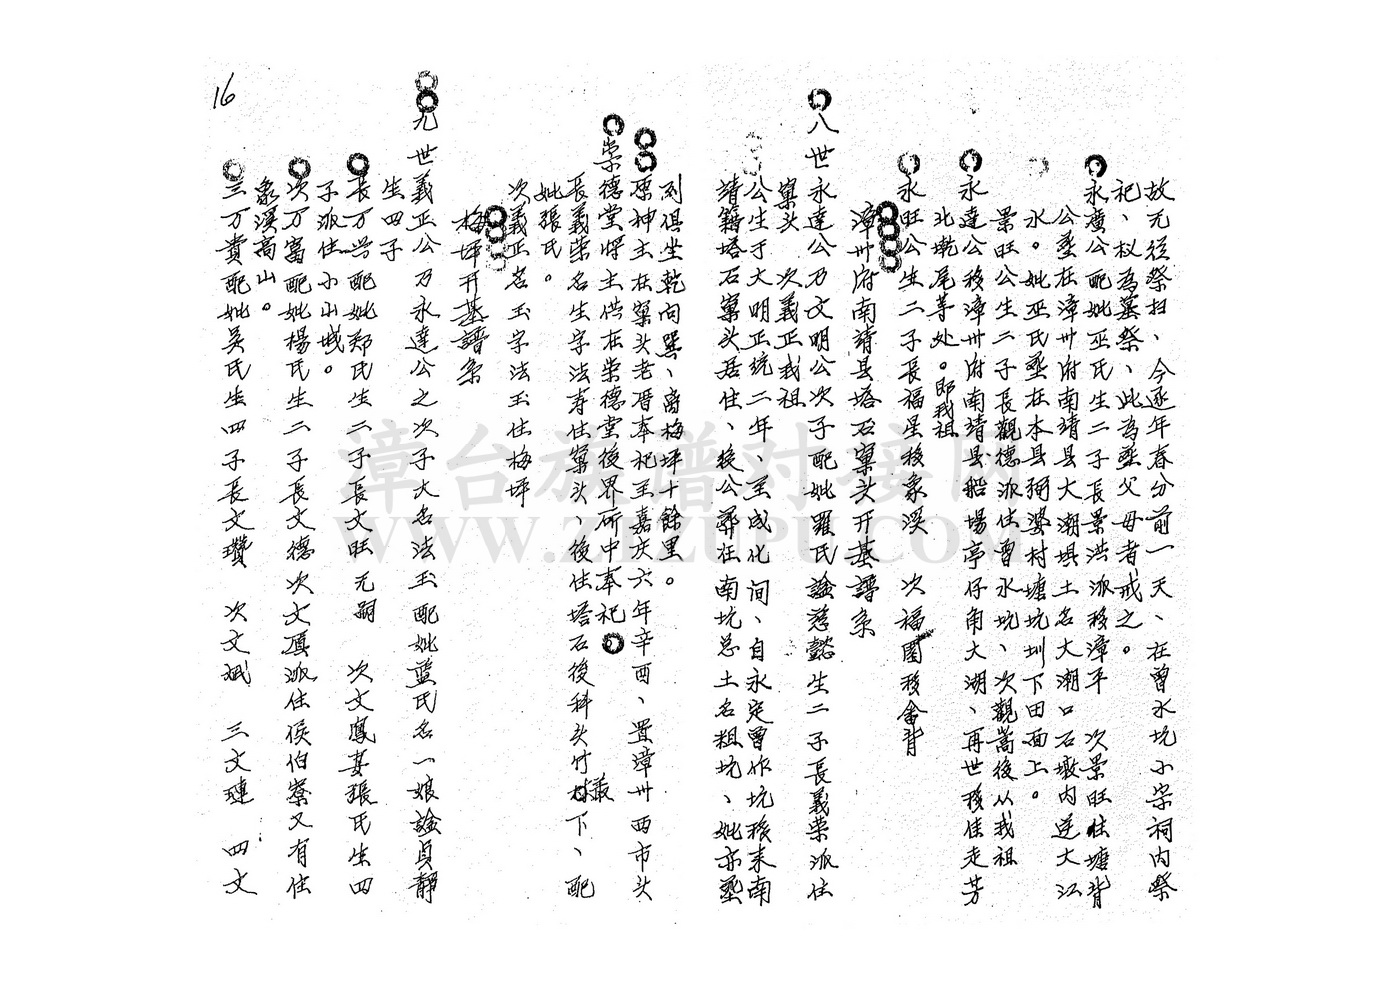 故元從祭扫、今逐年春分前一天、在曾水坑小宗祠内祭
祀、权為墓祭、此為塟父母者戒之。
永廣公配妣巫氏生二子長景洪派移漳平　次景旺住塘背
公塟在漳卅府南靖县大潮埧土名大潮口石墩内逆大江
水。妣巫氏塟在本县狗婆村塘坑圳下田面上。
景旺公生二子長觀德派住曾水坑、次觀嵩後从我祖
永達公移漳卅府南靖县船場亭仔角大湖、再世移住走芳
北墘尾等处。即我祖
永旺公生二子長福星移象溪　次福圍移畬背
漳卅府南靖县塔石窠头开基譜系
八世永達公乃文明公次子配妣羅氏諡慈懿生二子長義荣派住
窠头　次義正我祖
公生于大明正统二年、至成化间、自永定曾作坑移来南
靖籍塔石窠头居住、後公葬在南坑总土名粗坑、妣亦塟
列俱坐乾向巽、离梅坪十餘里。
原神主在窠头老厝奉祀至嘉庆六年辛酉、置漳卅西市头
崇德堂将主供在崇德堂後界所中奉祀
長義荣名生字法寿住窠头、後住塔石後科头竹林下、配
叢
妣張氏。
次義正名玉字法玉住梅坪
梅坪开基譜系
九世義正公乃永達公之次子大名法玉配妣蓝氏名一娘諡貞靜
生四子
長万兴配妣郑氏生二子長文旺元嗣　次文鳳妻張氏生四
子派住小小城。
次万富配妣楊氏生二子長文德次文厦派住侯伯寮又有住
象溪高山。
三万貴配妣吴氏生四子長文瓚　次文斌　三文璉　四文
16
漳台族譜对接网
WWW.ZTZUPU.COM